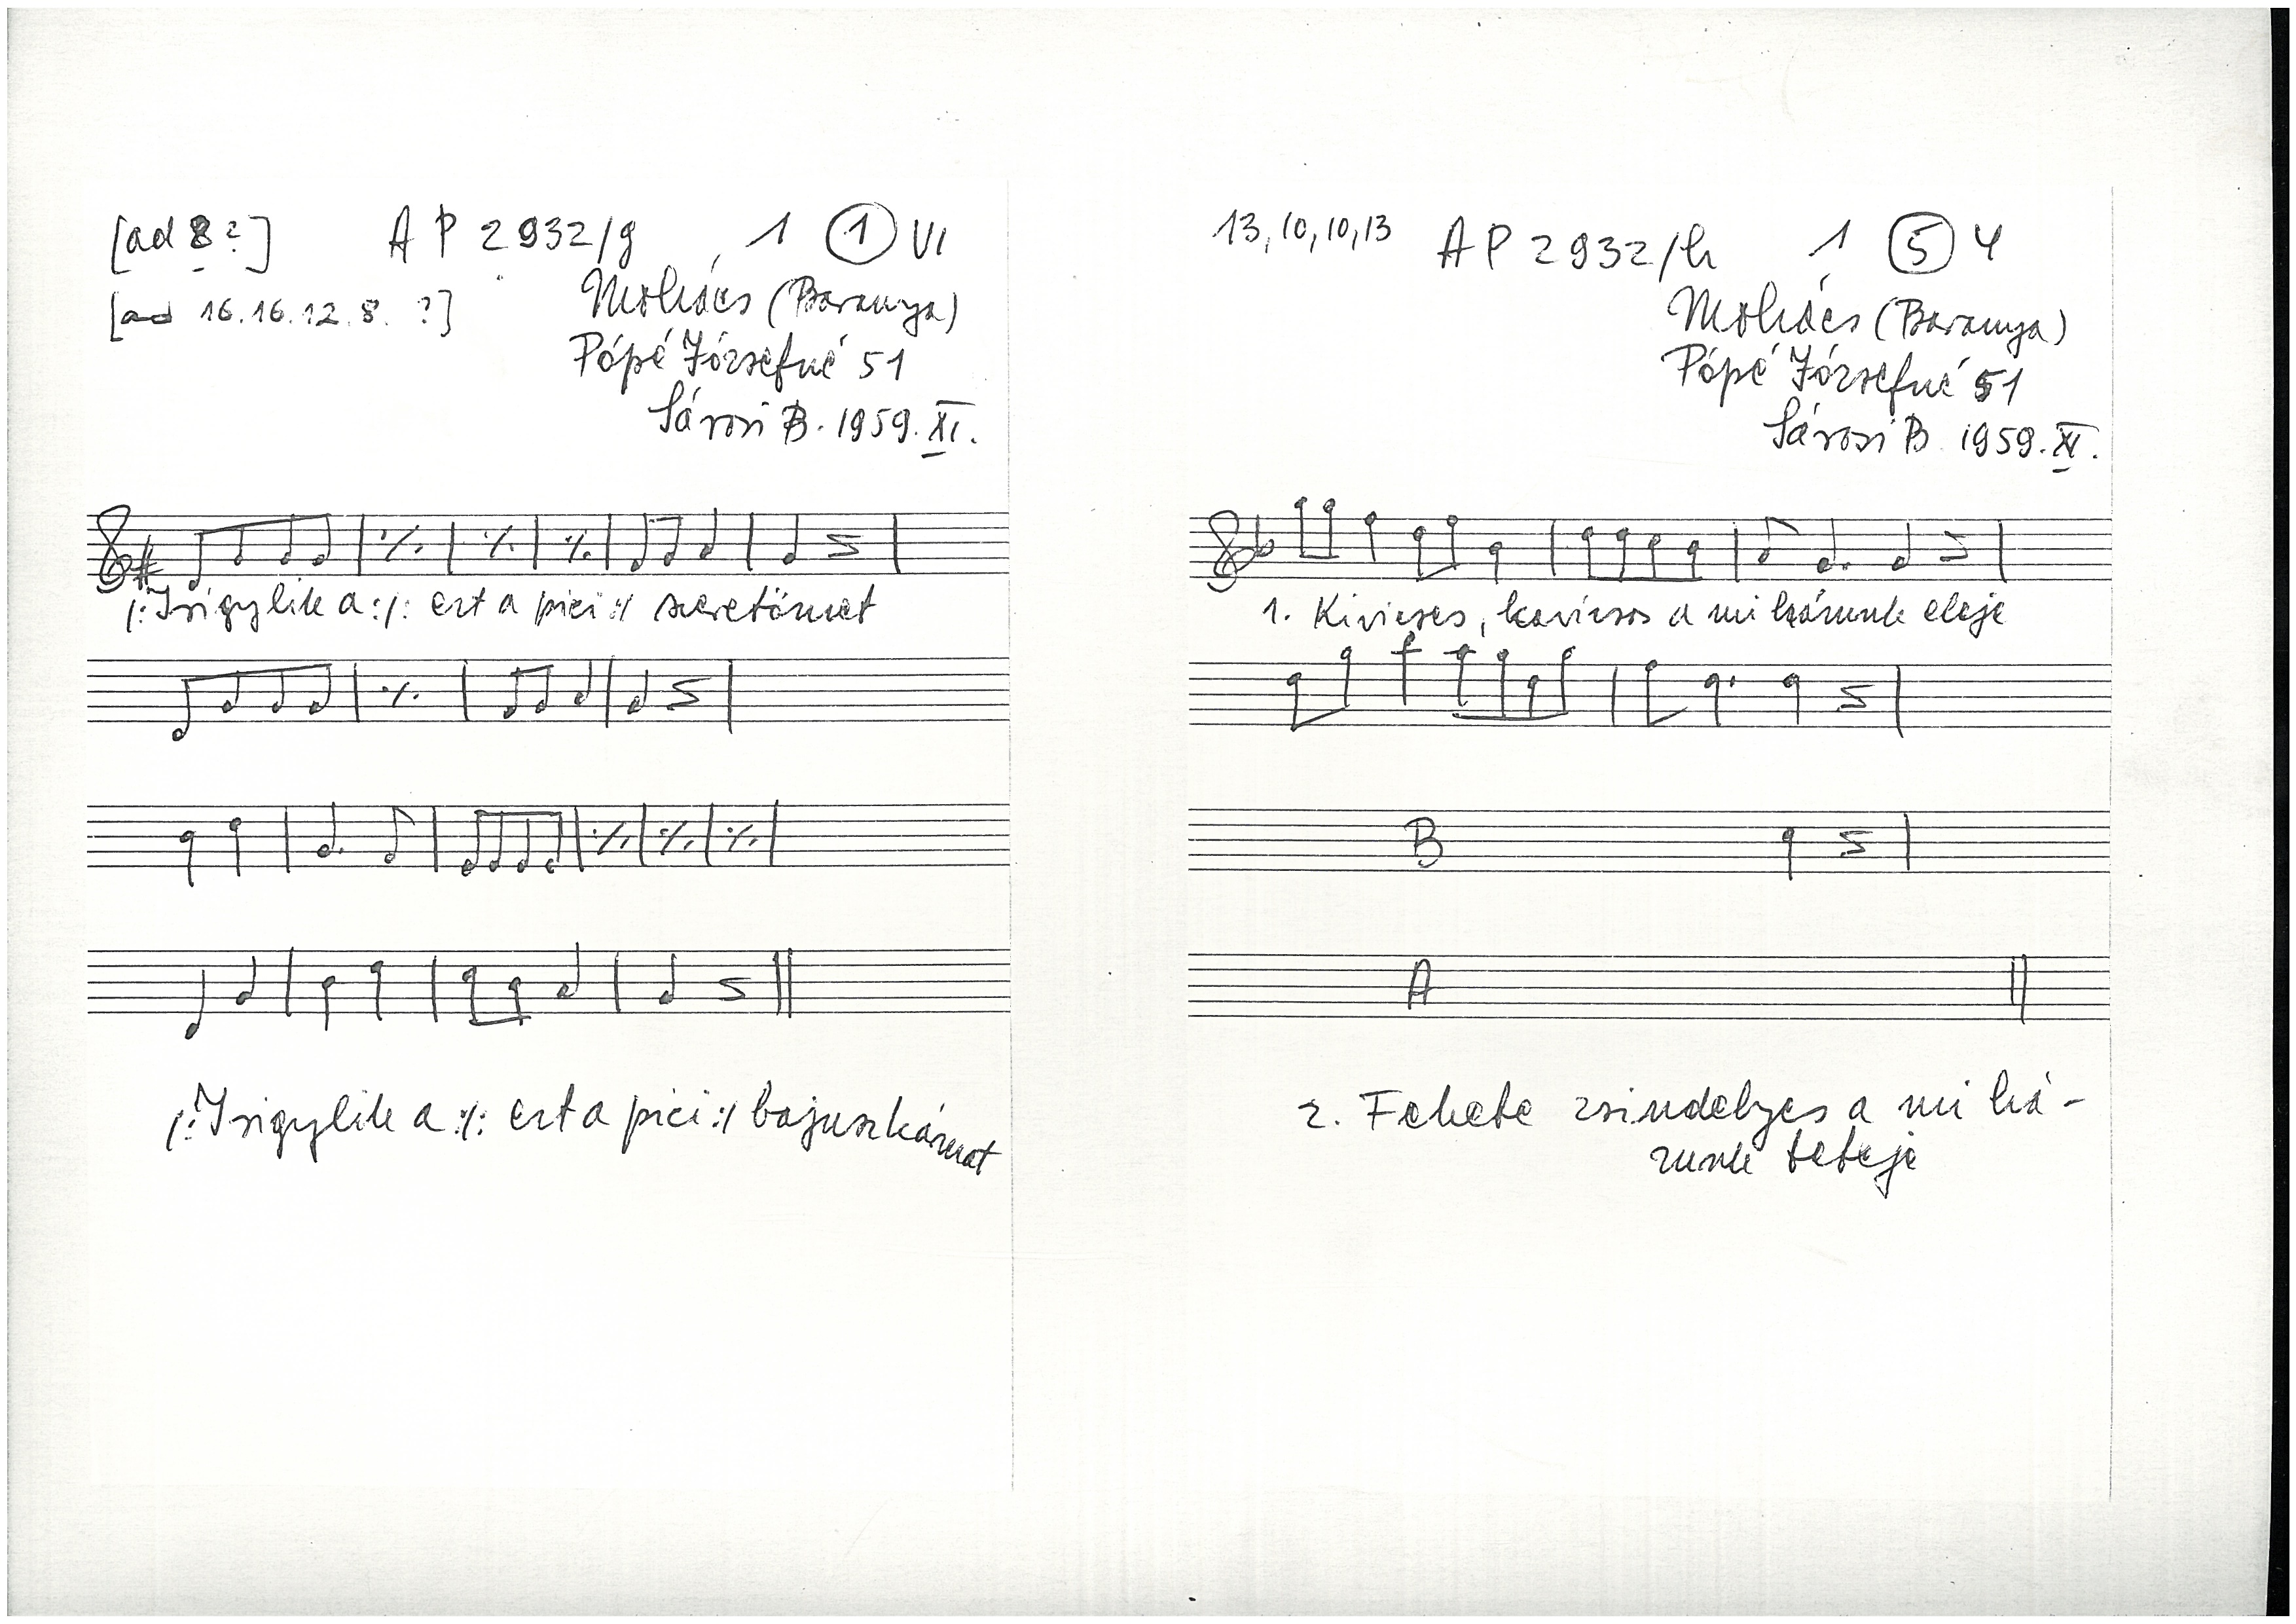 [ad 8?] AP 2932/g 1 1 VI
[ad 16.16.12.8. ?] Mohács (Baranya)
Pópé Józsefné 51
Sárosi B. 1959. XI.
/: Irigylik a :/: ezt a pici :/ szeretőmet
/: Irigylik a :/: ezt a pici :/ bajuszkámat
13, 10, 10, 13 AP 2932/h 1 5 4
Mohács (Baranya)
Pópé Józsefné 51
Sárosi B. 1959. XI.
1. Kivicses, kavicsos a mi házunk eleje
B
A
2. Fekete zsindelyes a mi há-
zunk teteje